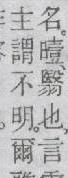 名。曀，翳也，言
主謂不明。爾雅